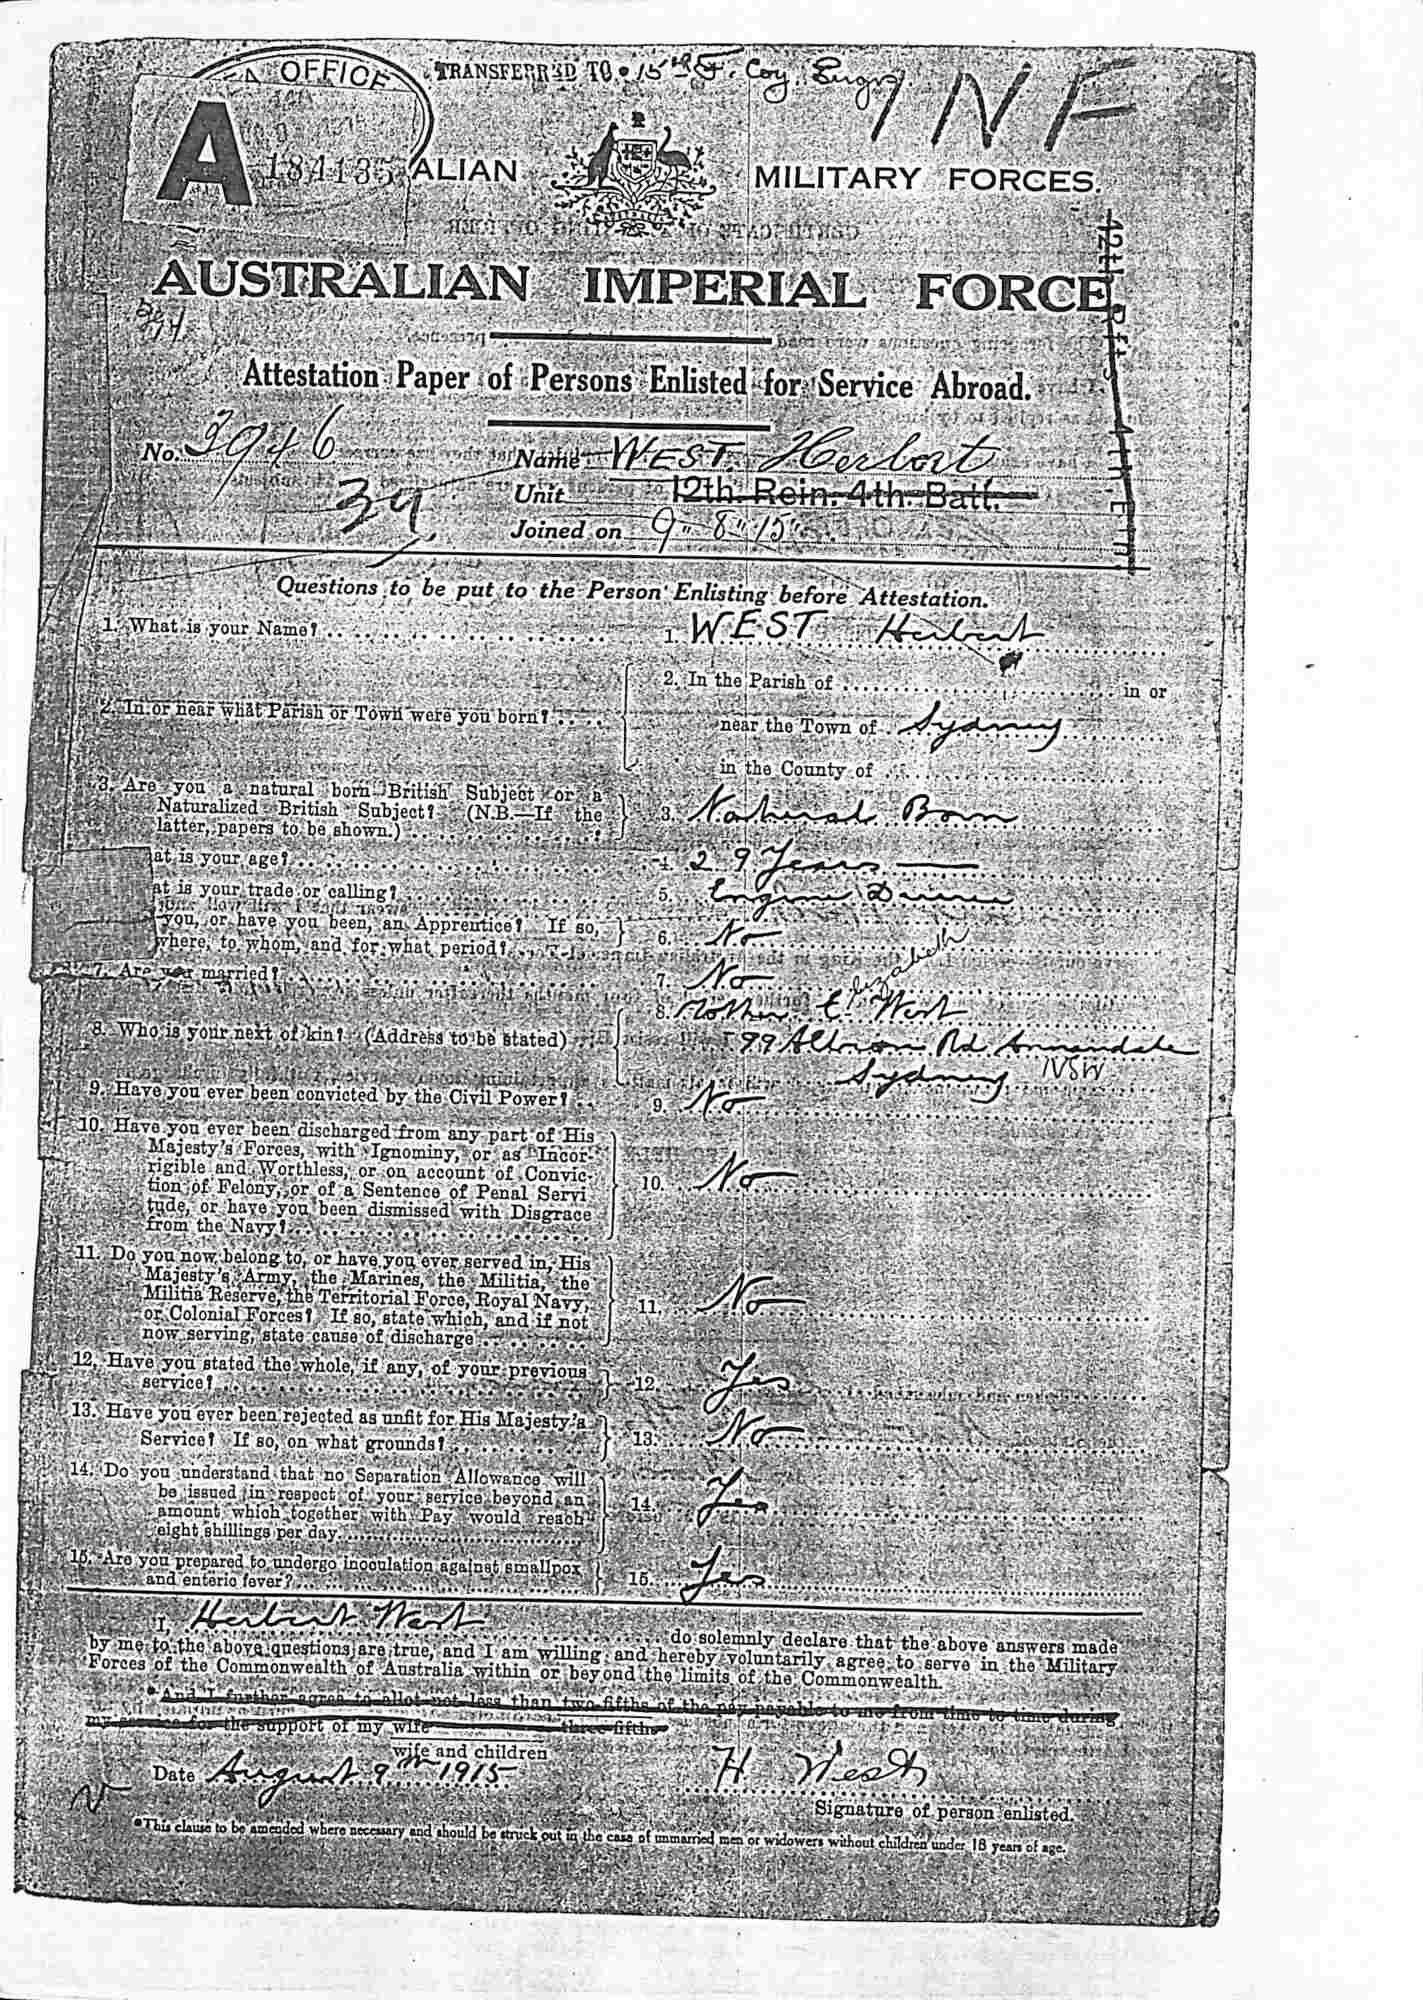 OFFICE
TRANSFERRED TO 15th F. Coy. Engrs
INF
A
184135
ALIAN MILITARY FORCES.
AUSTRALIA
AUSTRALIAN IMPERIAL FORCE
Attestation Paper of Persons Enlisted for Service Abroad.
No. 3946
Name WEST. Herbert
34
Unit 12th. Rein. 4th. Batt.
Joined on 9" 8" 15"
Questions to be put to the Person Enlisting before Attestation.
1. What is your Name? 1. WEST Herbert
2. In or near what Parish or Town were you born?
2. In the Parish of in or
near the Town of Sydney
in the County of
3. Are you a natural born British Subject or a
Naturalized British Subject? (N.B.—If the
latter, papers to be shown.)
3. Natural Born
at is your age? 4. 29 Years
at is your trade or calling? 5. Engine Driver
you, or have you been, an Apprentice? If so,
where, to whom, and for what period? 6. No
7. Are you married? 7. No
8. Who is your next of kin? (Address to be stated)
8. Mother E lizabeth West
99 Albion Rd. Annandale
Sydney NSW
9. Have you ever been convicted by the Civil Power? 9. No
10. Have you ever been discharged from any part of His
Majesty's Forces, with Ignominy, or as Incor-
rigible and Worthless, or on account of Convic-
tion of Felony, or of a Sentence of Penal Servi
tude, or have you been dismissed with Disgrace
from the Navy?
10. No
11. Do you now belong to, or have you ever served in, His
Majesty's Army, the Marines, the Militia, the
Militia Reserve, the Territorial Force, Royal Navy,
or Colonial Forces? If so, state which, and if not
now serving, state cause of discharge
11. No
12. Have you stated the whole, if any, of your previous
service?
12. Yes
13. Have you ever been rejected as unfit for His Majesty's
Service? If so, on what grounds?
13. No
14. Do you understand that no Separation Allowance will
be issued in respect of your service beyond an
amount which together with Pay would reach
eight shillings per day
14. Yes
15. Are you prepared to undergo inoculation against smallpox
and enteric fever?
15. Yes
I, Herbert West do solemnly declare that the above answers made
by me to the above questions are true, and I am willing and hereby voluntarily agree to serve in the Military
Forces of the Commonwealth of Australia within or beyond the limits of the Commonwealth.
*And I further agree to allot not less than two-fifths of the pay payable to me from time to time during
my service for the support of my wife three-fifths
wife and children
Date August 9th 1915
H West
Signature of person enlisted.
*This clause to be amended where necessary and should be struck out in the case of unmarried men or widowers without children under 18 years of age.